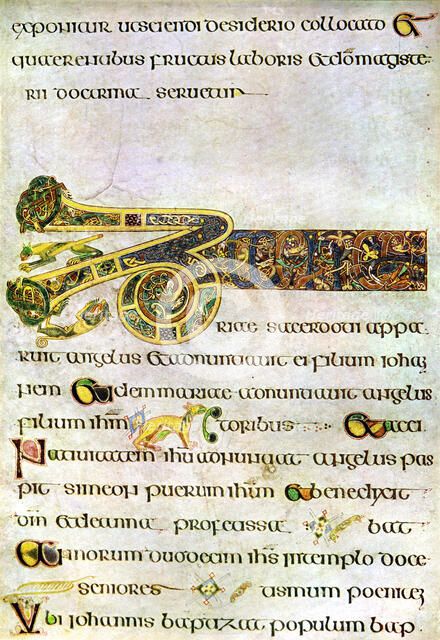 exponitur utsciendi desiderio collocato Et
quaerentibus fructus laboris Etdomagiste
rii doctrina servetur
Zacha
riae sacerdoti appa
ruit angelus Etadnuntiavit ei filium iohan
nem Et idem mariae adnuntiavit angelus
filium ihm toribus Et acci
Nativitatem ihu adnuntiat angelus pas
pit simeon puerum ihm Et benedixit
dm Etdeanna profetissa bat
Annorum duodecim ihs intemplo doce
seniores tismum poeniten
Ubi iohannis baptizat populum bap